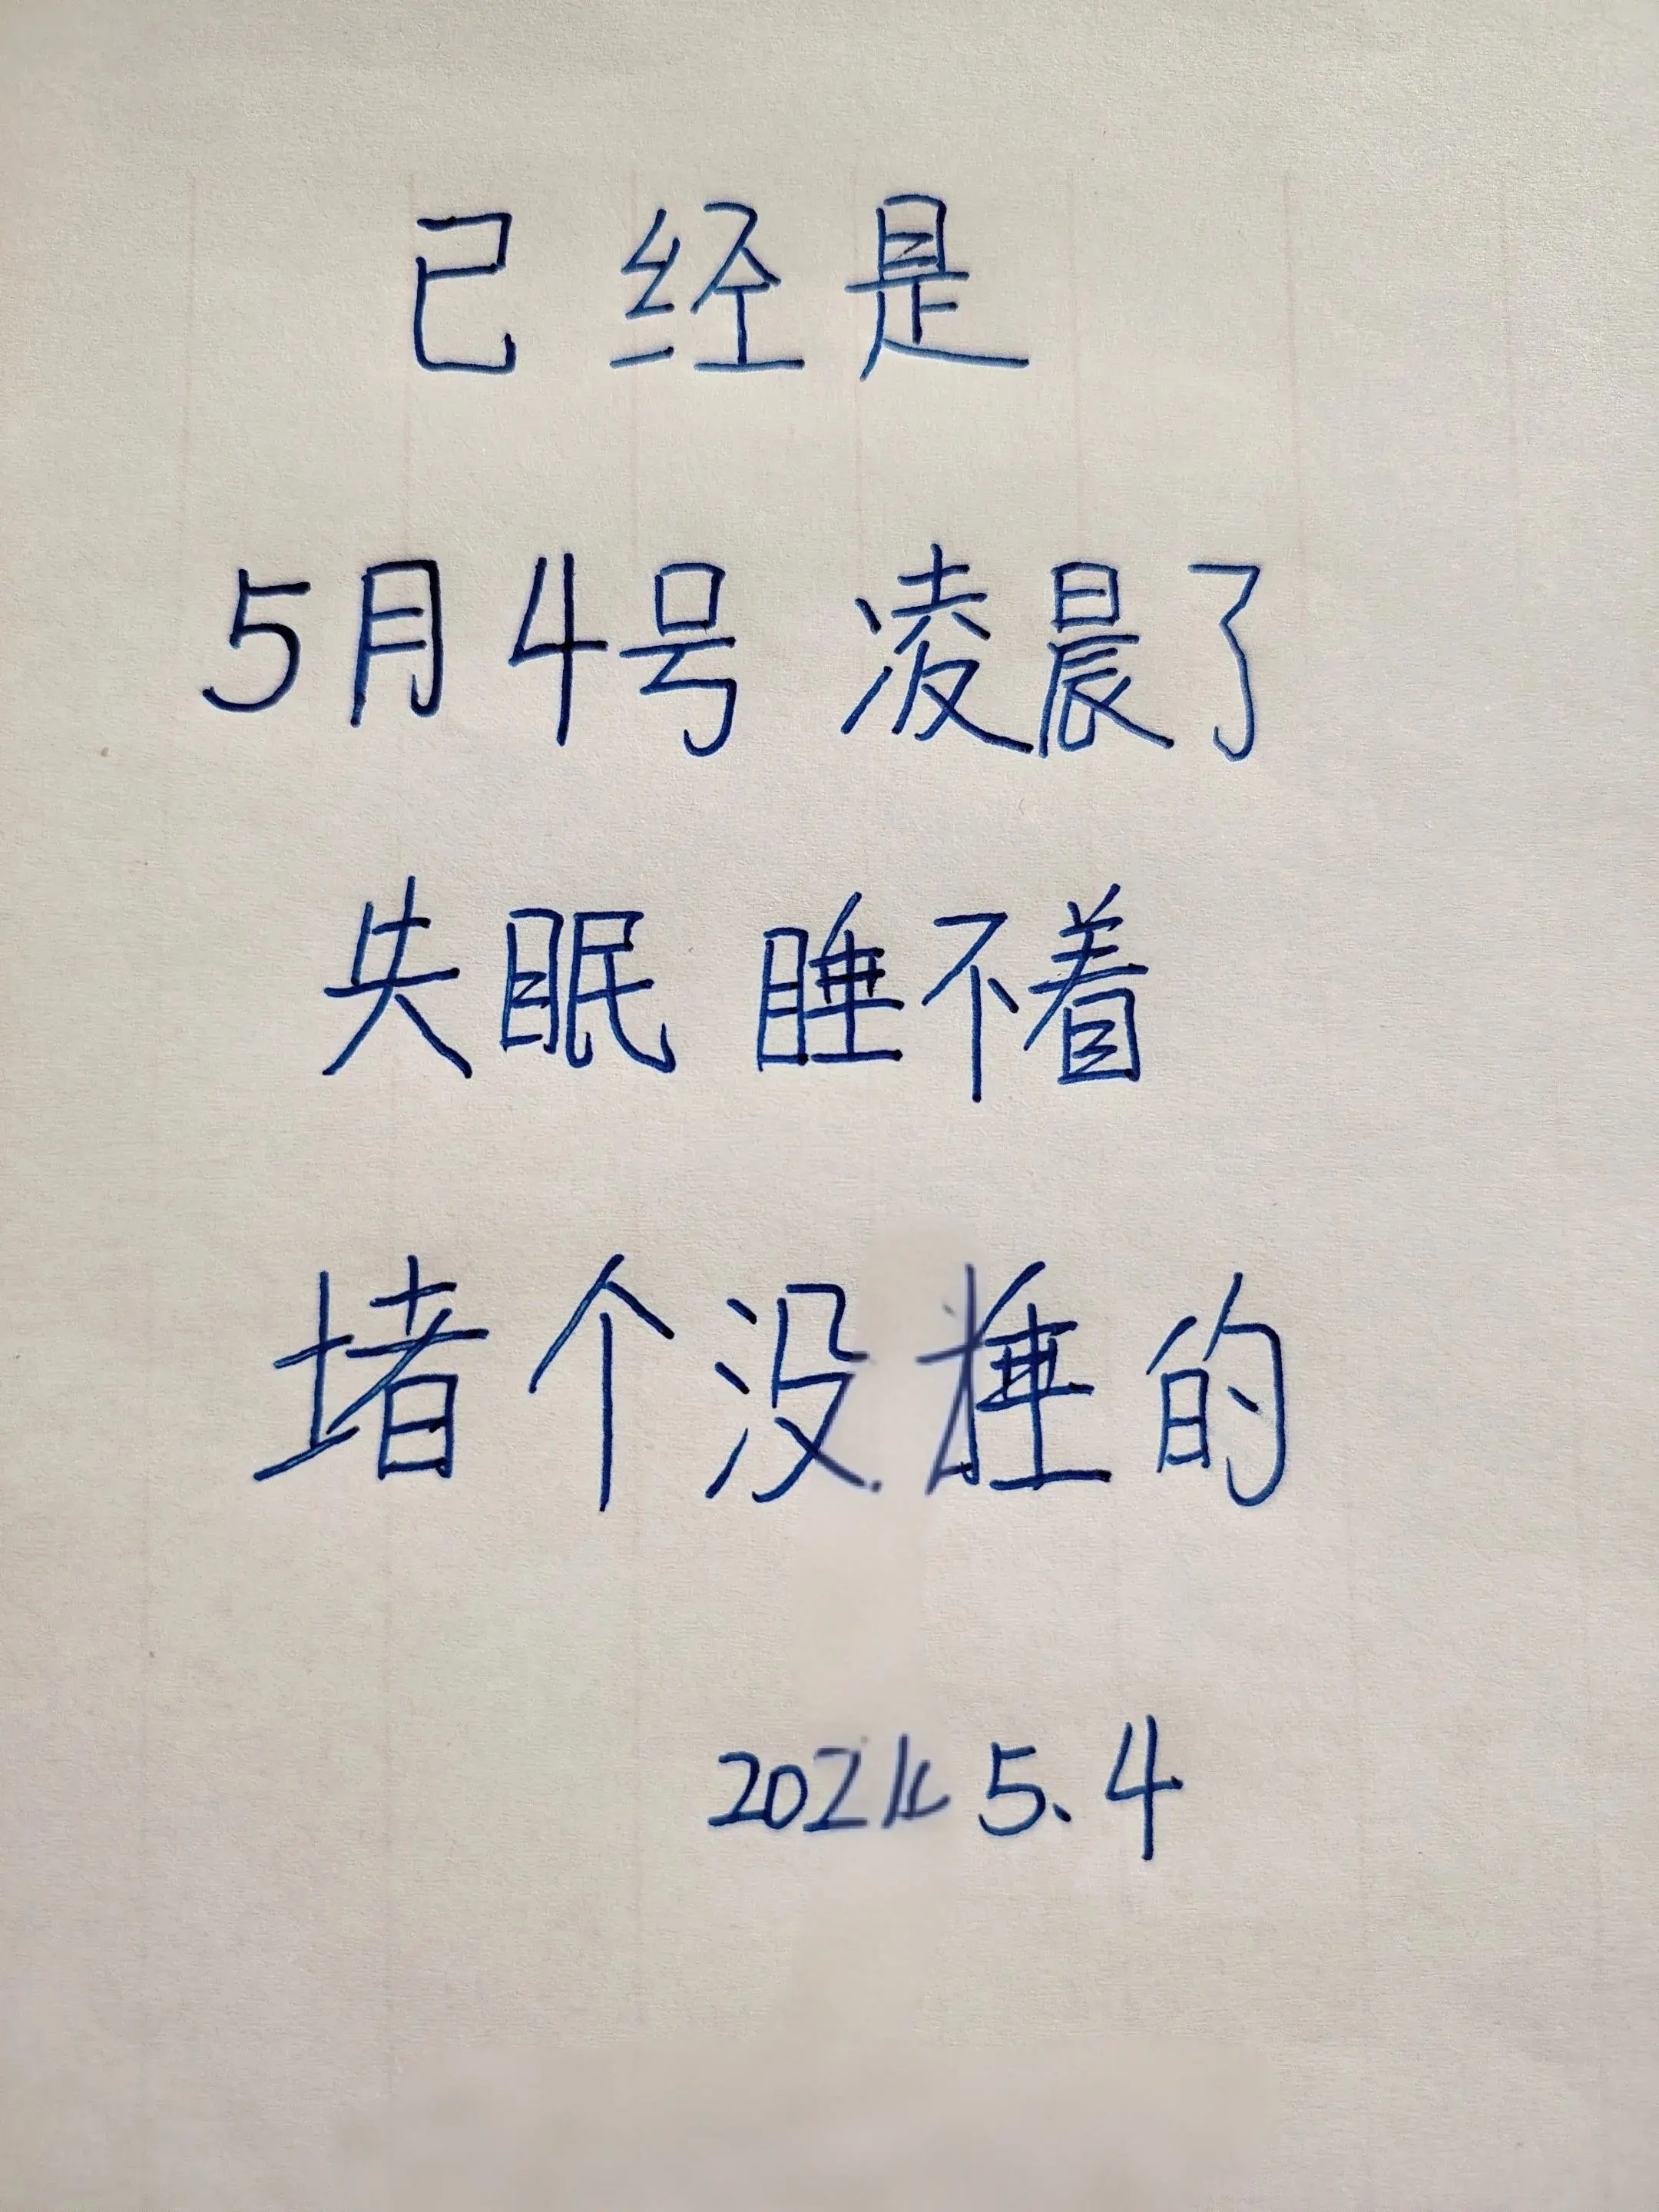 已经是
5月4号 凌晨了
失眠 睡不着
堵个没睡的
5.4